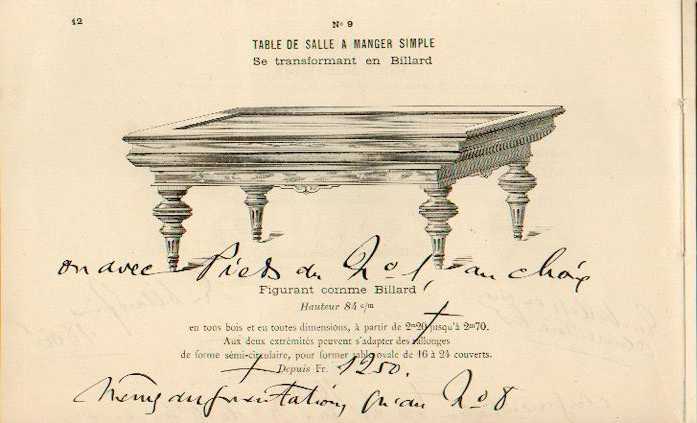 12
No 9
TABLE DE SALLE A MANGER SIMPLE
Se transformant en Billard
ou avec Pieds du No 1, au choix
Figurant comme Billard
Hauteur 84 c/m
en tous bois et en toutes dimensions, à partir de 2m20 jusqu'à 2m70.
Aux deux extrémités peuvent s'adapter des rallonges
de forme sémi-circulaire, pour former table ovale de 16 à 24 couverts.
Depuis Fr. 1250.
Même augmentation qu'au No 8